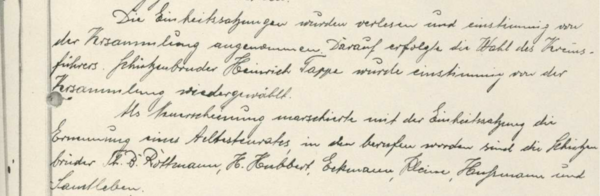 Die Einheitssatzungen wurden verlesen und einstimmig von
der Versammlung angenommen. Darauf erfolgte die Wahl des Vereins-
führers. Schützenbruder Heinrich Tappe wurde einstimmig von der
Versammlung wiedergewählt.
Als Neuerscheinung marschierte mit der Einheitssatzung die
Ernennung eines Aeltestenrates, in den berufen worden sind die Schützen
brüder B. Röttmann, H. Hubbert, Eckmann, Kleine, Hußmann und
Sanstleben.